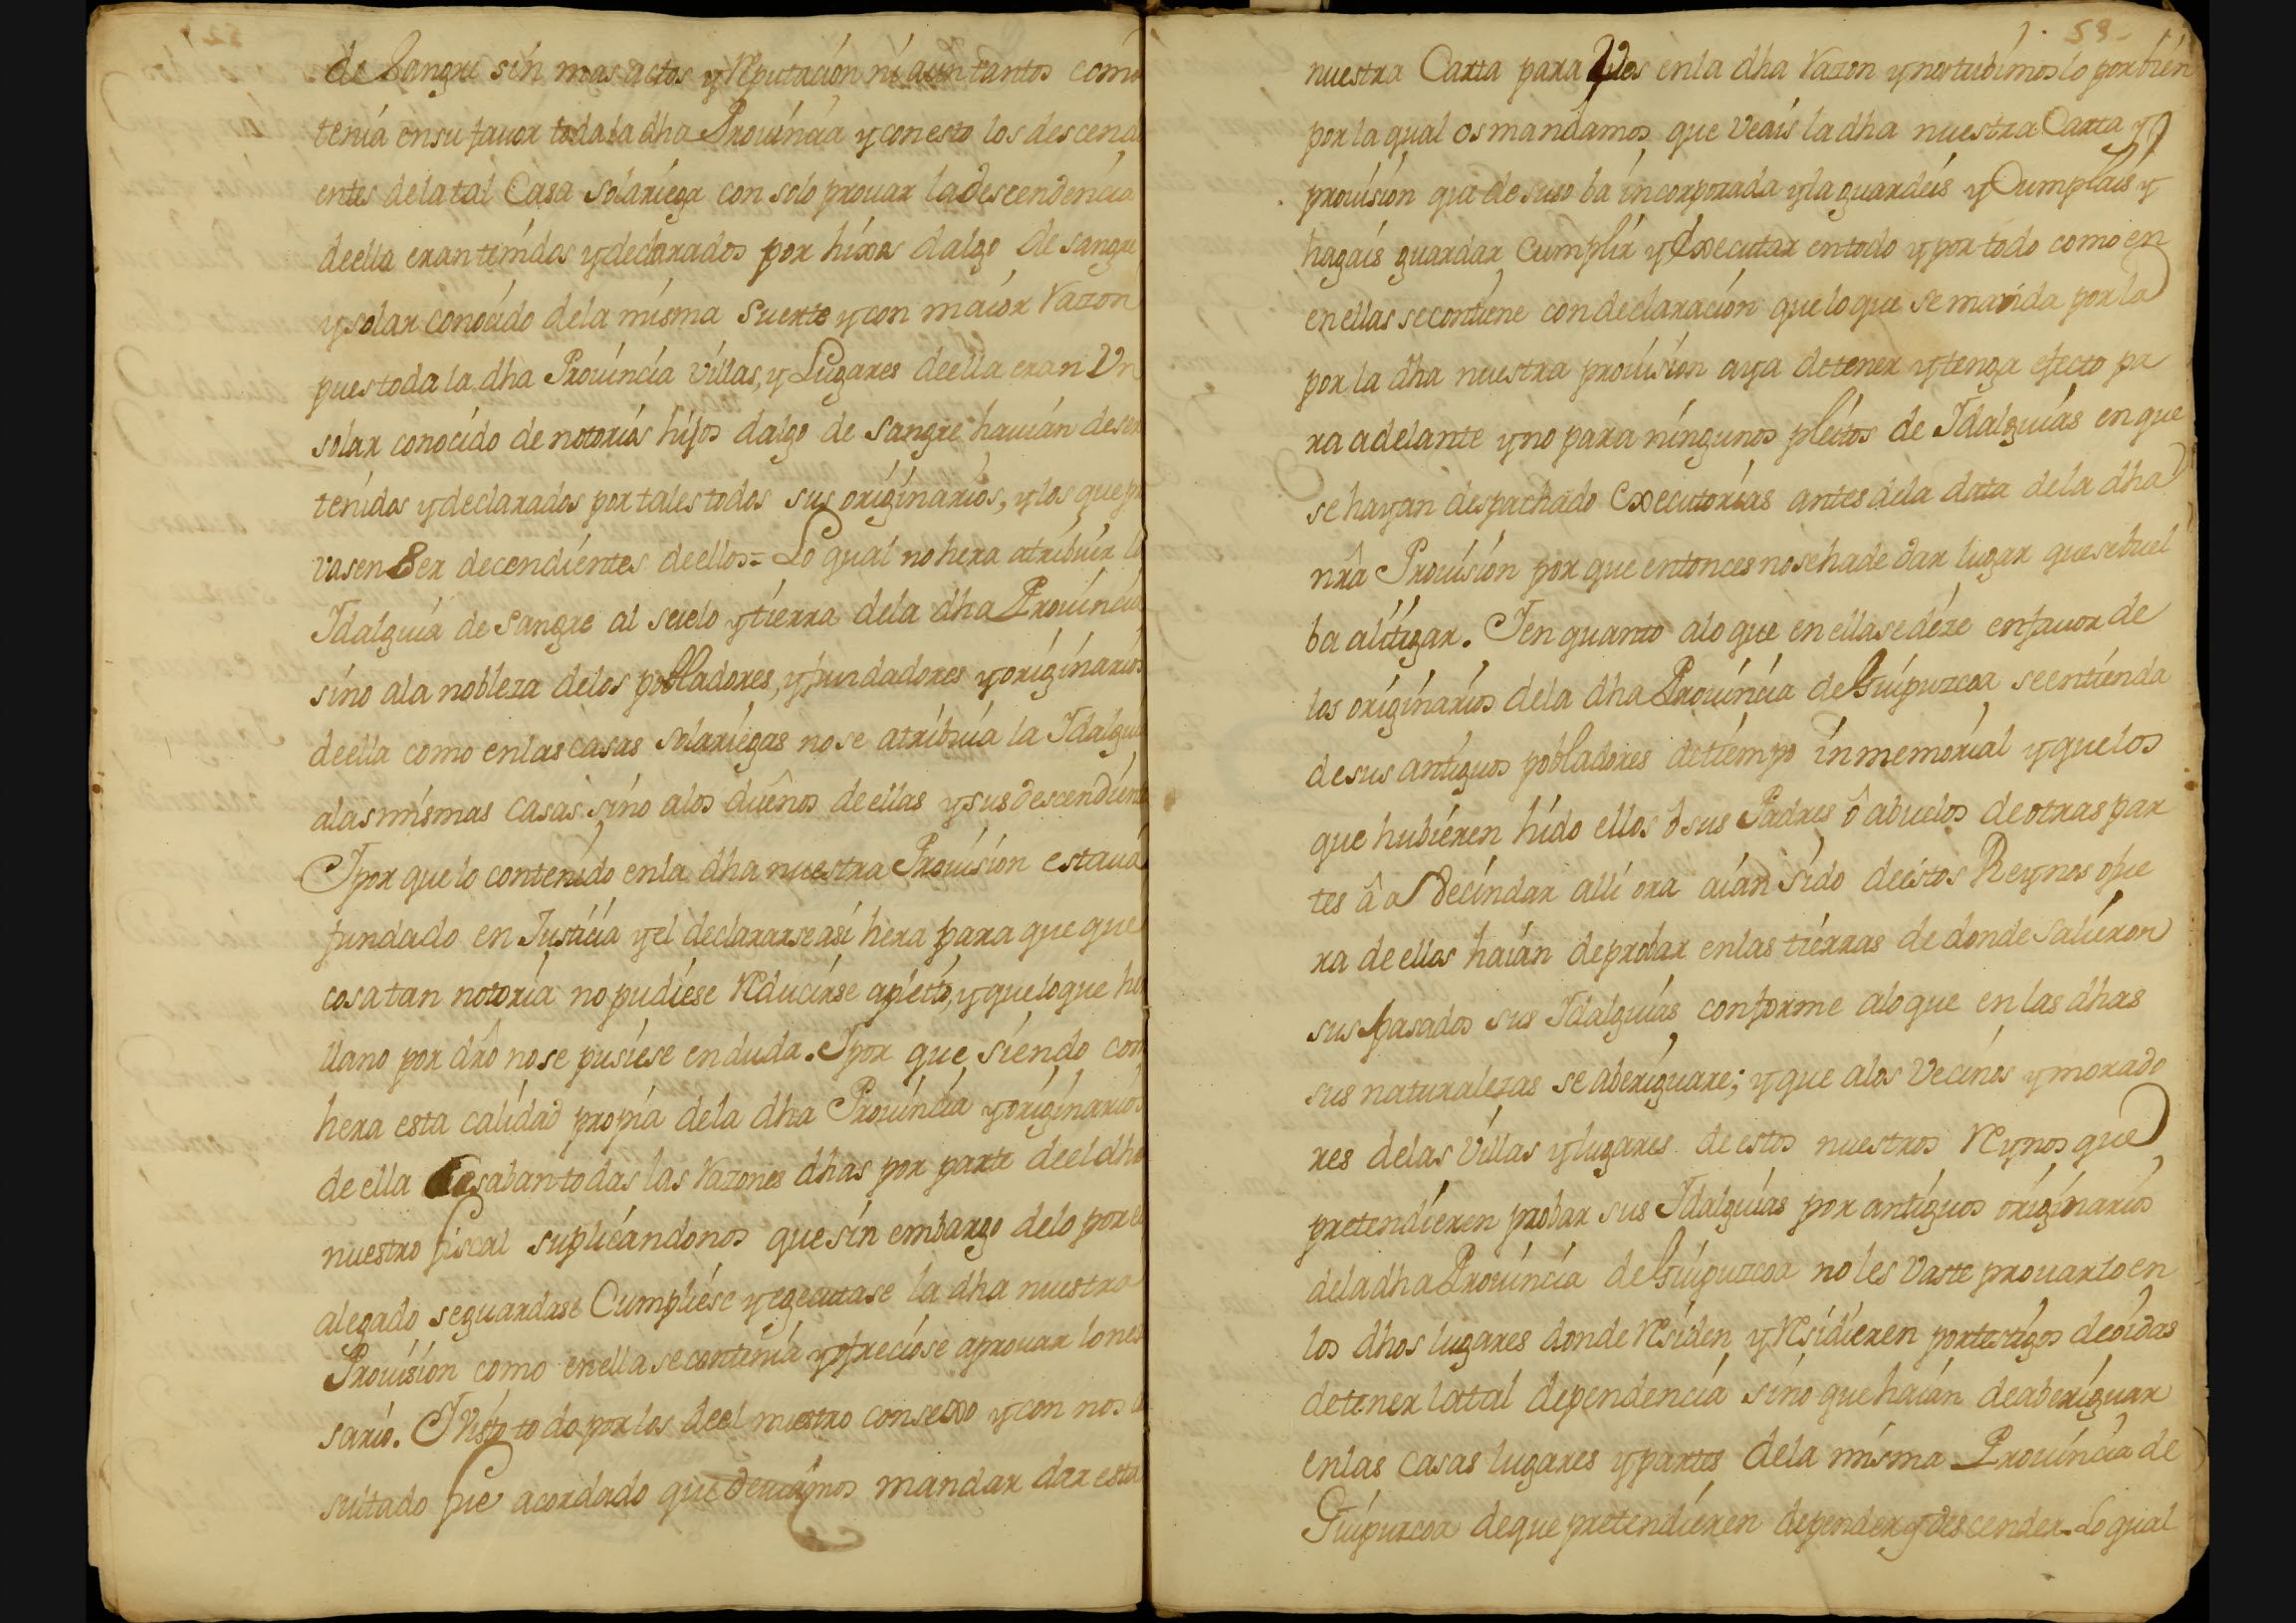 de Sangre sin mas actos y Reputacion ni aun tantos como
tenia en su favor toda la dha Prouincia y con esto los descendi
entes de la tal Casa Solariega con solo prouar la descendencia
de ella eran tenidos y declarados por hixos dalgo de sangre
y solar conocido de la misma Suerte y con maior Razon
pues toda la dha Prouincia Villas, y Lugares de ella eran Vn
solar conocido de notorios hijos dalgo de sangre hauian de ser
tenidos y declarados por tales todos sus originarios, y los que pr
vasen Ser decendientes de ellos = Lo qual no hera atribuir la
Idalguia de Sangre al suelo y tierra de la dha Prouincia
sino a la nobleza de los pobladores, y fundadores y originarios
de ella como en las casas solariegas no se atribuia la Idalguia
a las mismas casas sino a los dueños de ellas y sus descendien
Y por que lo contenido en la dha nuestra Prouision estaua
fundado en Justicia y el declararse asi hera para que que
cosa tan notoria no pudiese Reducirse a pleito, y que lo que he
llano por dro no se pusiese en duda. Y por que siendo com
hera esta calidad propia de la dha Prouincia y originarios
de ella Cesaban todas las Razones dhas por parte de el dho
nuestro fiscal suplicandonos que sin embargo de lo por el
alegado se guardase Cumpliese y egecutase la dha nuestra
Prouision como en ella se contenia y ofreciose a prouar lo nese
sario. Y Visto todo por los de el nuestro consexo y con nos
sultado fue acordado que deuiamos mandar dar esta
59
nuestra Carta para Vos en la dha Razon y nos tubimoslo por bien
por la qual os mandamos que Veais la dha nuestra Carta y
prouision que de suso ba incorporada y la guardeis y Cumplais y
hagais guardar Cumplir y Executar en todo y por todo como en
en ellas se contiene con declaracion que lo que se manda por la
por la dha nuestra prouision aya de tener y tenga efecto pa
ra adelante y no para ningunos pleitos de Idalguias en que
se hayan despachado Executorias antes de la data de la dha
nra Prouision por que entonces no se ha de dar lugar que se buel
ba a litigar. Y en quanto a lo que en ella se dize en fauor de
los originarios de la dha Prouincia de Guipuzcoa se entienda
de sus antiguos pobladores de tiempo inmemorial y que los
que hubieren hido ellos ô sus Padres ô abuelos de otras par
tes â a Vecindar alli ora aian sido de estos Reynos o fue
ra de ellos haian de probar en las tierras de donde salieron
sus pasados sus Idalguias conforme a lo que en las dhas
sus naturalezas se aberiguare; y que a los Vecinos y morado
res de las Villas y lugares de estos nuestros Reynos que
pretendieren probar sus Idalguias por antiguos originarios
de la dha Prouincia de Guipuzcoa no les Vaste prouarlo en
los dhos lugares donde Residen y Residieren por testigos de oidas
de tener la tal dependencia sino que haian de aberiguar
en las casas lugares y partes de la misma Prouincia de
Guipuzcoa de que pretendieren depender y descender. Lo qual